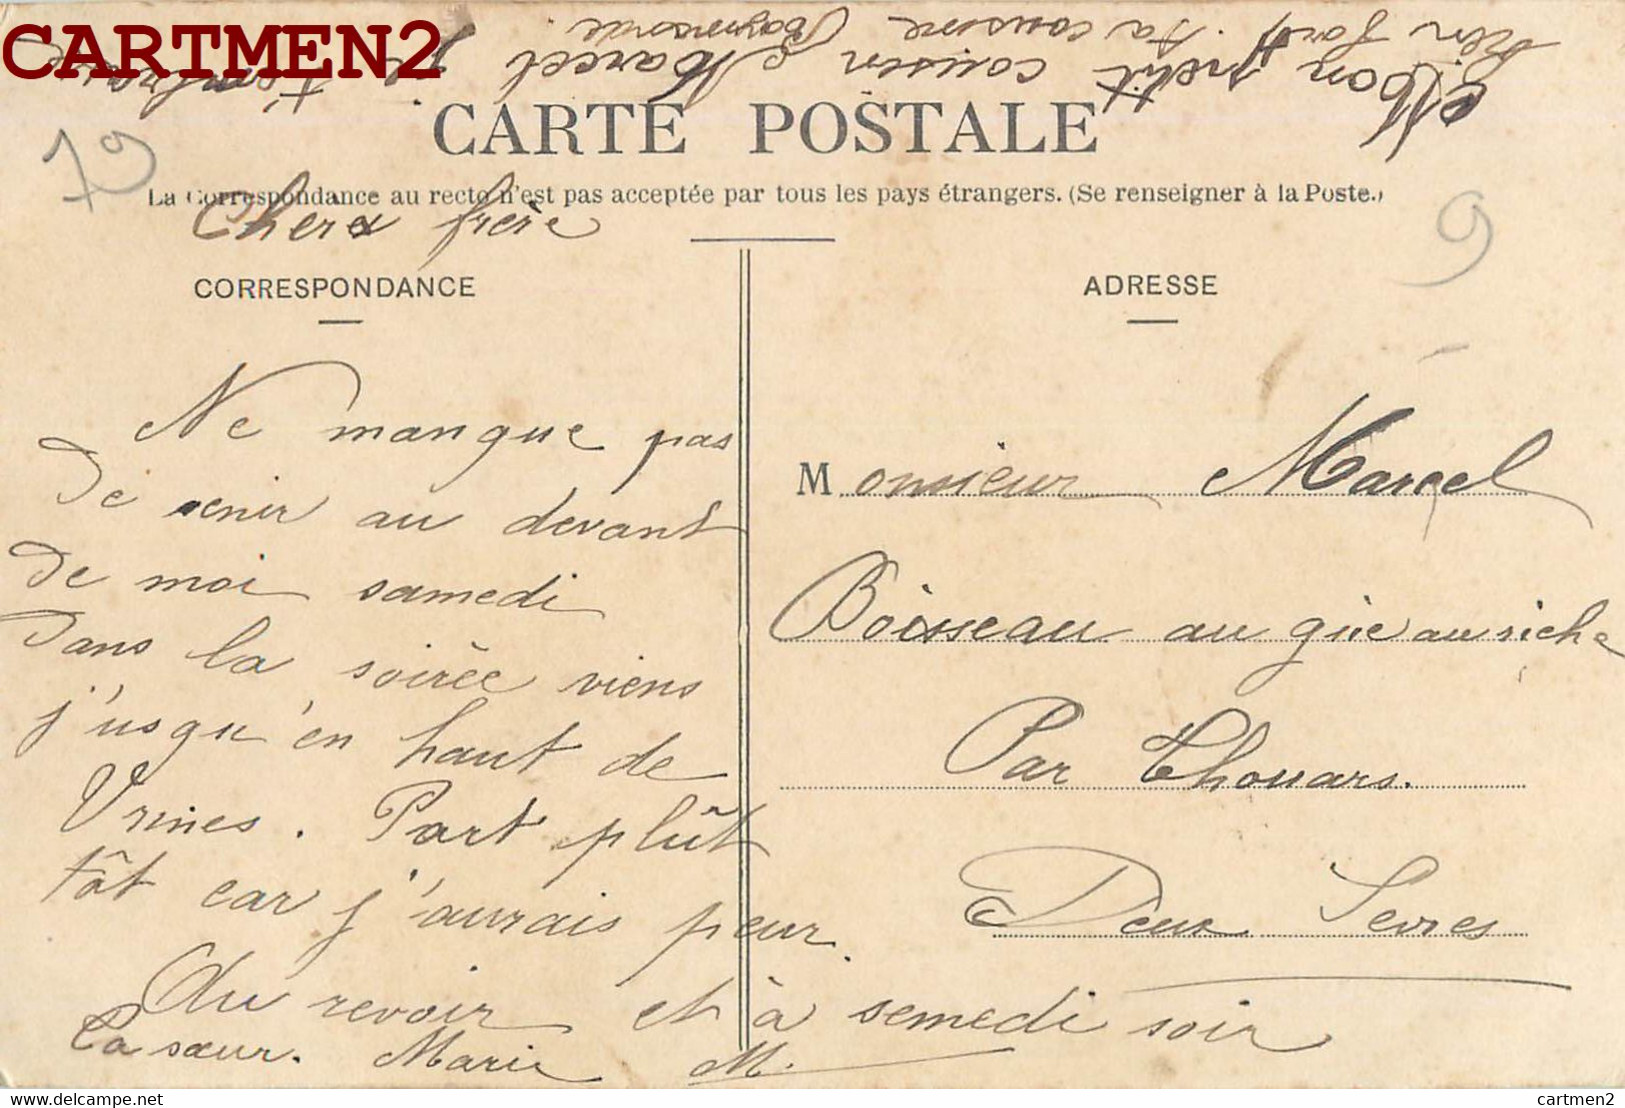 CARTMEN2
Mon petit cousin Marcel je t'embrasse
bien fort. Ta cousine
Raymonde.
79
CARTE POSTALE
La Correspondance au recto n'est pas acceptée par tous les pays étrangers. (Se renseigner à la Poste.)
Cher frère
9
CORRESPONDANCE
Ne mangue pas
de venir au devant
de moi samedi
dans la soirée viens
j'usqu'en haut de
Vrines. Part plût
tôt car j'aurais peur.
Au revoir et à semedi soir
Ta sœur. Marie M.
ADRESSE
Monsieur Marcel
Boisseau au gué au riche
Par Thouars.
Deux Sevres
delcampe.net
cartmen2